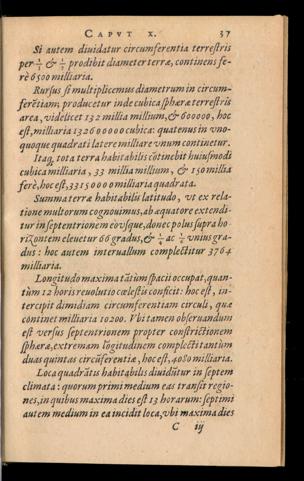 CAPVT X. 37
Si autem diuidatur circumferentia terrestris
per & prodibit diameter terræ, continens fe-
rè 6500 milliaria.
Rursus si multiplicemus diametrum in circum-
ferētiam; producetur inde cubica sphæræ terrestris
area, videlicet 132 millia millium, & 600000, hoc
est, milliaria 132600000 cubica: quatenus in vno-
quoque quadrati latere milliare vnum continetur.
Itaq, tota terra habitabilis cōtinebit huiusmodi
cubica milliaria, 33 millia millium, & 150 millia
ferè, hoc est, 33150000 milliaria quadrata.
Summa terræ habitabilis latitudo, vt ex rela-
tione multorum cognouimus, ab æquatore extendi-
tur in septentrionem eò vsque, donec polus supra ho-
rizontem eleuetur 66 gradus, & ac vnius gra-
dus: hoc autem interuallum complectitur 3764
milliaria.
Longitudo maxima tātùm spacii occupat, quan-
tùm 12 horis reuolutio cælestis conficit: hoc est, in-
tercipit dimidiam circumferentiam circuli, quæ
continet milliaria 10200. Vbi tamen obseruandum
est versus septentrionem propter constrictionem
sphæræ, extremam lōgitudinem complecti tantùm
duas quintas circūferentiæ, hoc est, 4080 milliaria.
Loca quadrātis habitabilis diuidūtur in septem
climata: quorum primi medium eas transit regio-
nes, in quibus maxima dies est 13 horarum: septimi
autem medium in ea incidit loca, vbi maxima dies
C iij